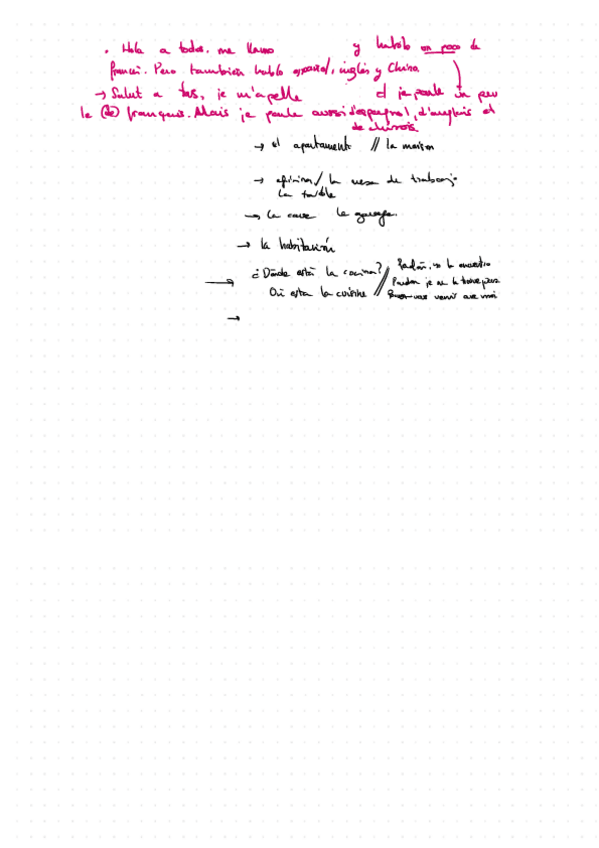 . Hola a todos. me llamo y hablo un poco de
francés. Pero tambien hablo español, inglés y Chino
→ Salut a tus, je m'apelle et je parle un peu
le (de) français. Mais je parle aussi d'espagnol, d'anglais et
de chinois.
→ el apartament // la maison
→ / la mesa de trabajo
La table
→ La cave le garage.
→ la habitación
→ ¿Dónde está la cocina? // Perdón, no lo encuentro
Où esta la cuisine // Pardon je ne le trouve pas
vous venir avec moi
→